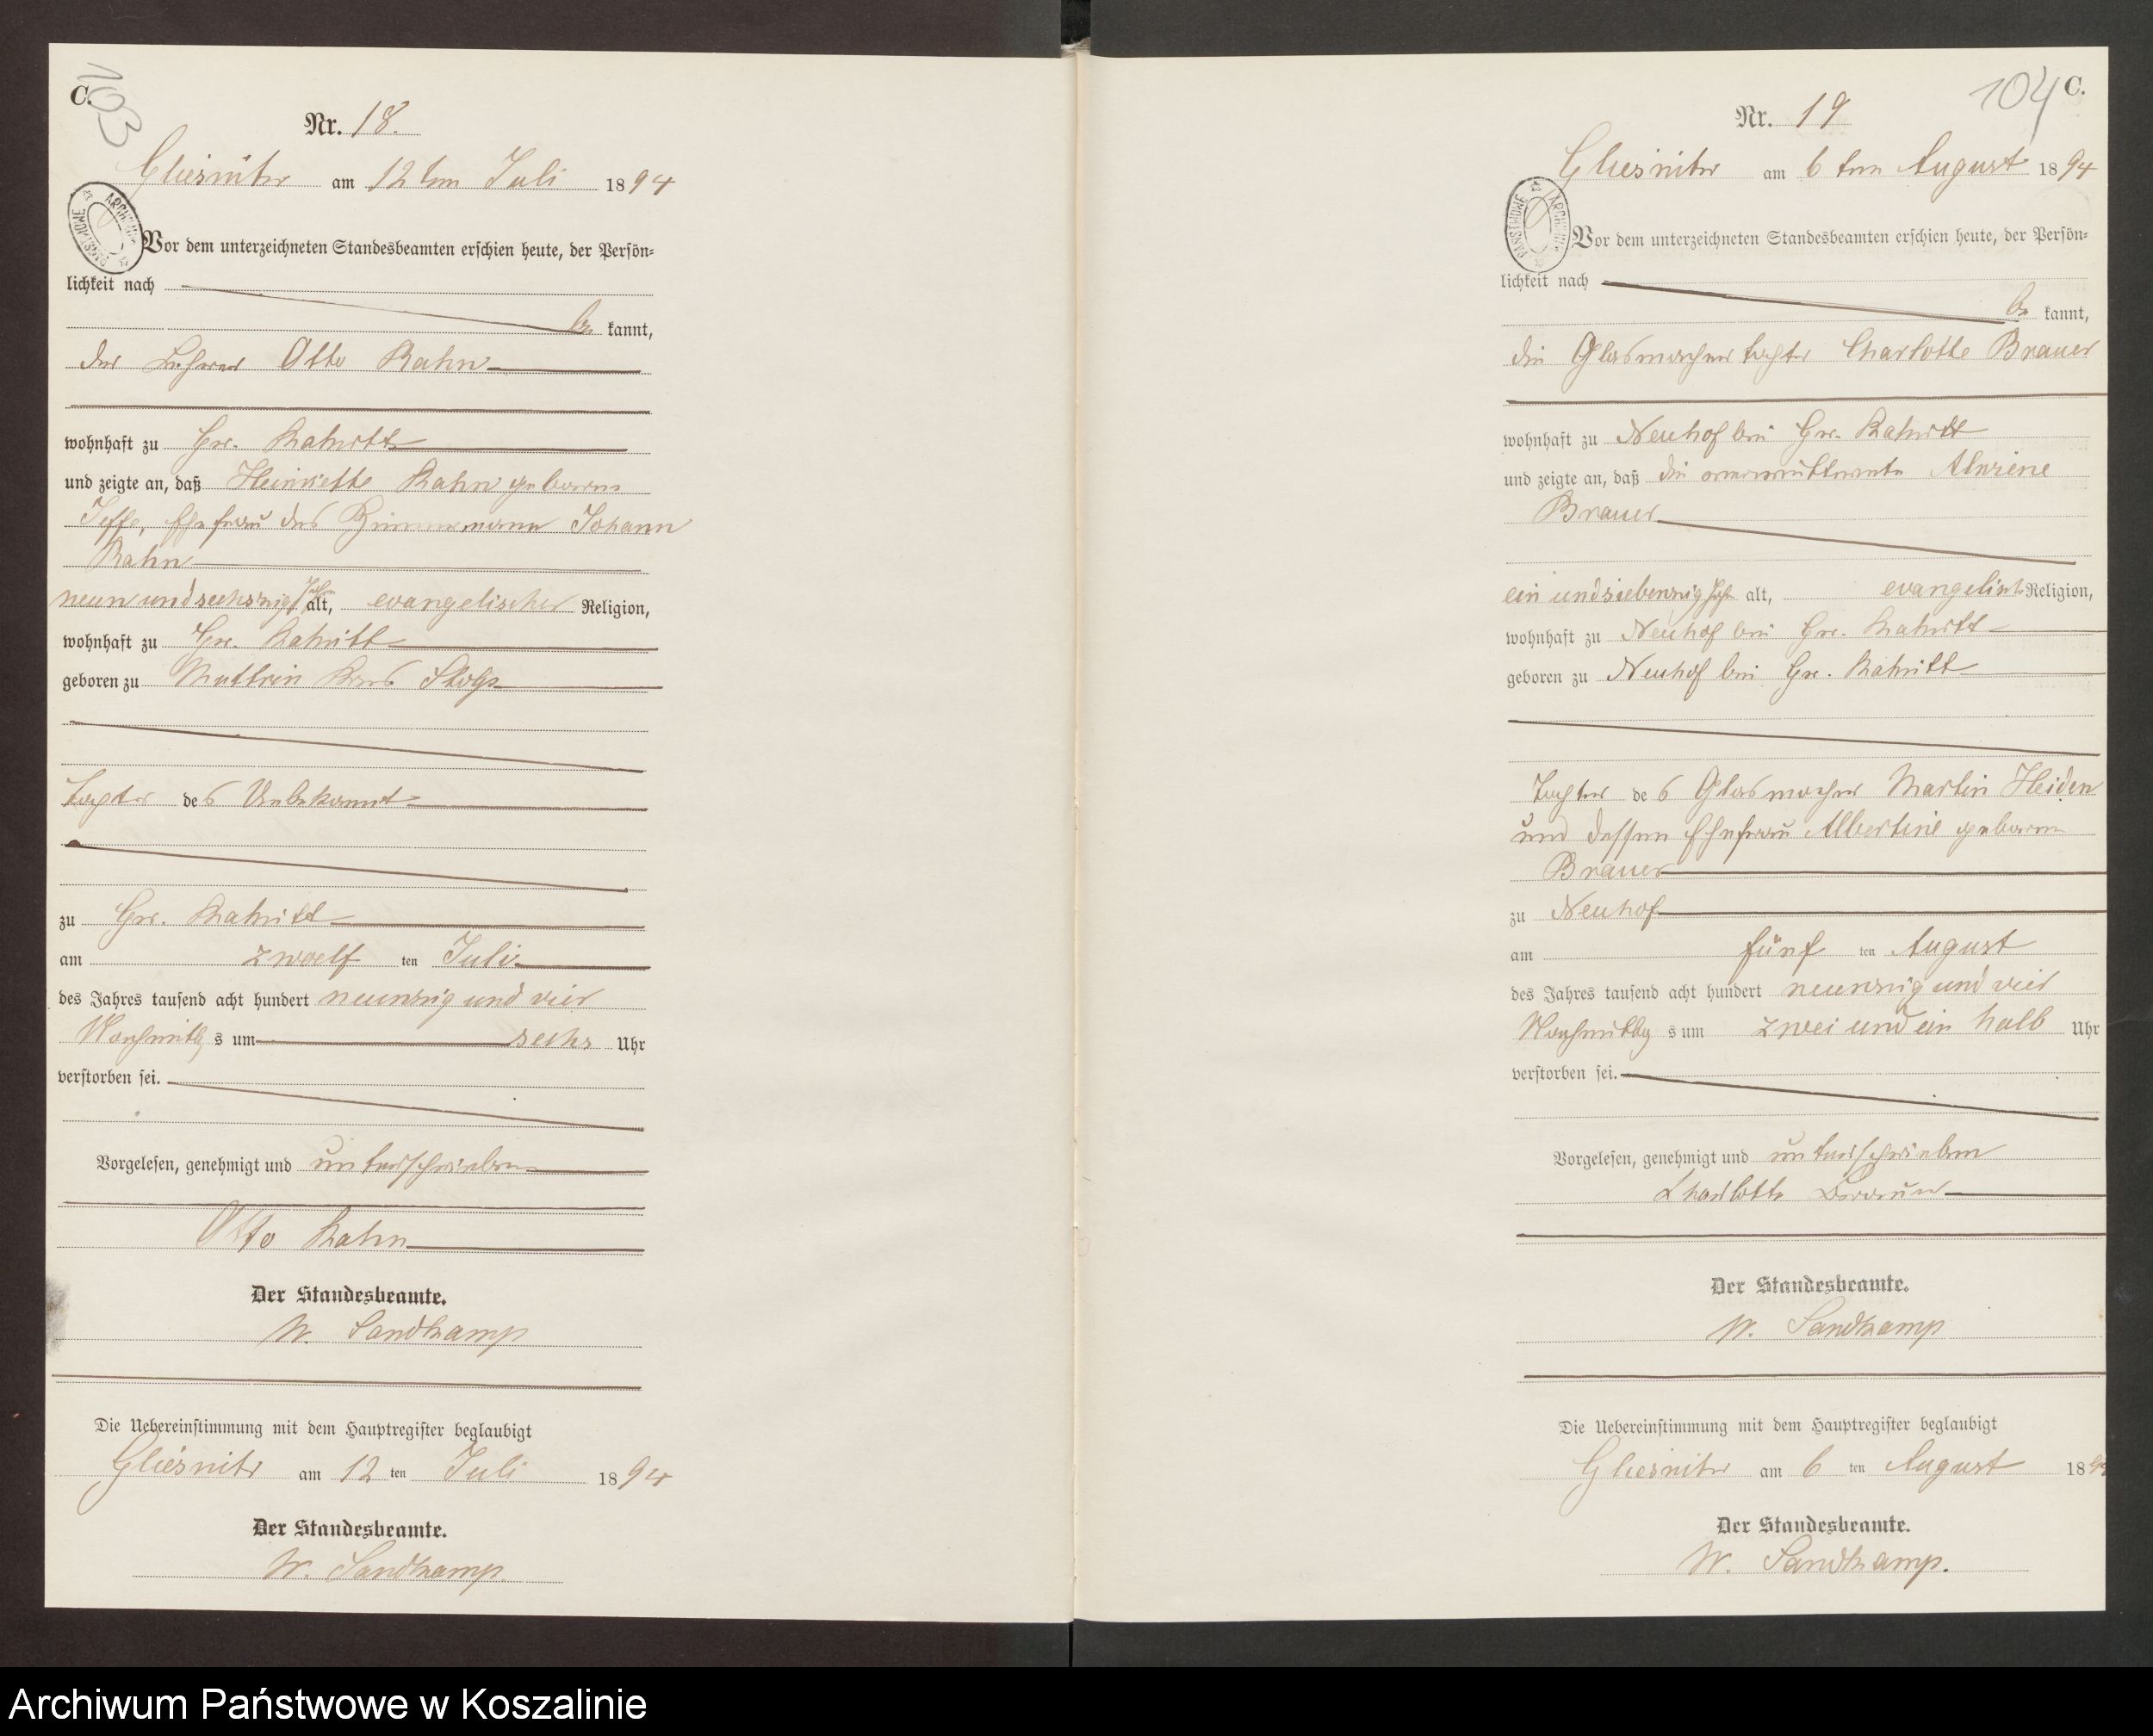 C.
103
Nr. 18.
Gliesnitz am 12 ten Juli 1894
ARCHIWUM PAŃSTWOWE
Vor dem unterzeichneten Standesbeamten erschien heute, der Persön-
lichkeit nach
be kannt,
der Lehrer Otto Rahn
wohnhaft zu Gr. Rakitt
und zeigte an, daß Henriette Rahn geborne
Ehefrau des Zimmermann Johann
Rahn
neun und sechszig Jahre alt, evangelischer Religion,
wohnhaft zu Gr. Rakitt
geboren zu Muttrin Kreis Stolp
Tochter des Unbekannt
zu Gr. Rakitt
am zwoelf ten Juli
des Jahres tausend acht hundert neunzig und vier
Nachmittags um sechs Uhr
verstorben sei.
Vorgelesen, genehmigt und unterschrieben
Otto Rahn
Der Standesbeamte.
W. Sandkamp
Die Uebereinstimmung mit dem Hauptregister beglaubigt
Gliesnitz am 12 ten Juli 1894
Der Standesbeamte.
W. Sandkamp.
104 C.
Nr. 19
Gliesnitz am 6 ten August 1894
ARCHIWUM PAŃSTWOWE
Vor dem unterzeichneten Standesbeamten erschien heute, der Persön-
lichkeit nach
be kannt,
die Glasmachertochter Charlotte Brauer
wohnhaft zu Neuhof bei Gr. Rakitt
und zeigte an, daß die
Brauer
ein und siebenzig Jahre alt, evangelisch Religion,
wohnhaft zu Neuhof bei Gr. Rakitt
geboren zu Neuhof bei Gr. Rakitt
Tochter des Glasmacher Martin Heiden
und dessen Ehefrau Albertine geborne
Brauer
zu Neuhof
am fünf ten August
des Jahres tausend acht hundert neunzig und vier
Nachmittags um zwei und ein halb Uhr
verstorben sei.
Vorgelesen, genehmigt und unterschrieben
Charlotte Brauer
Der Standesbeamte.
W. Sandkamp
Die Uebereinstimmung mit dem Hauptregister beglaubigt
Gliesnitz am 6 ten August 1894
Der Standesbeamte.
W. Sandkamp.
Archiwum Państwowe w Koszalinie